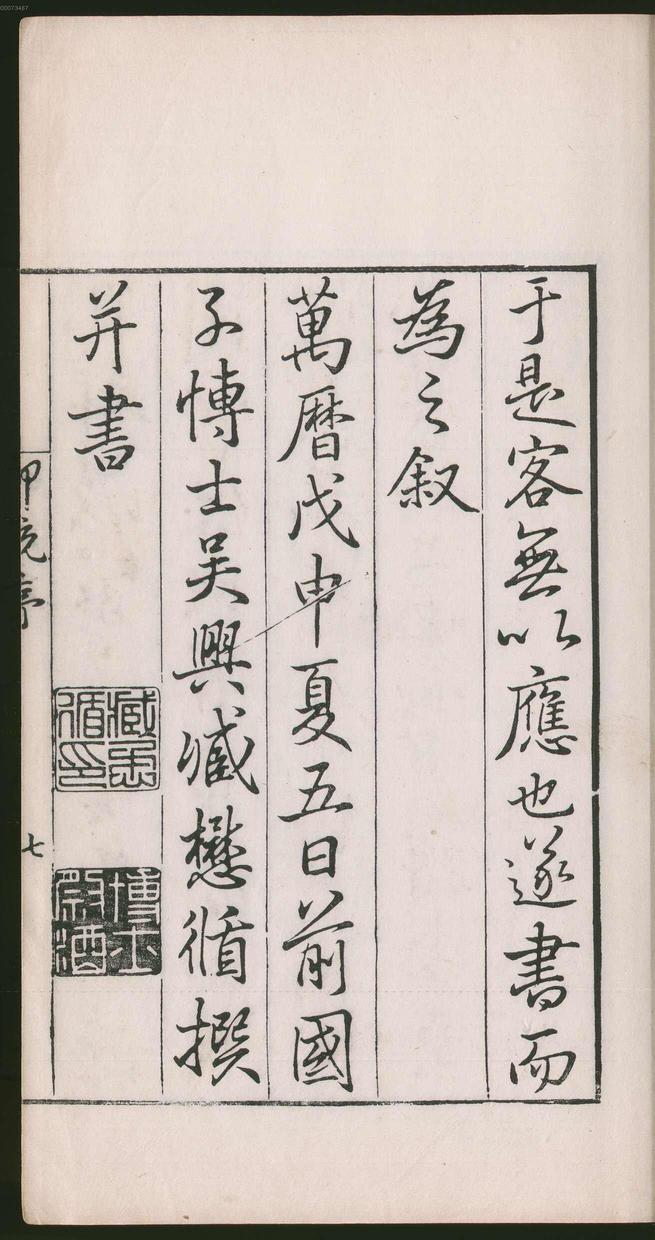 于是客無以應也遂書而
為之叙
萬曆戊申夏五日前國
子博士吳興臧懋循撰
并書
臧懋循印
博士祭酒
七
00073467